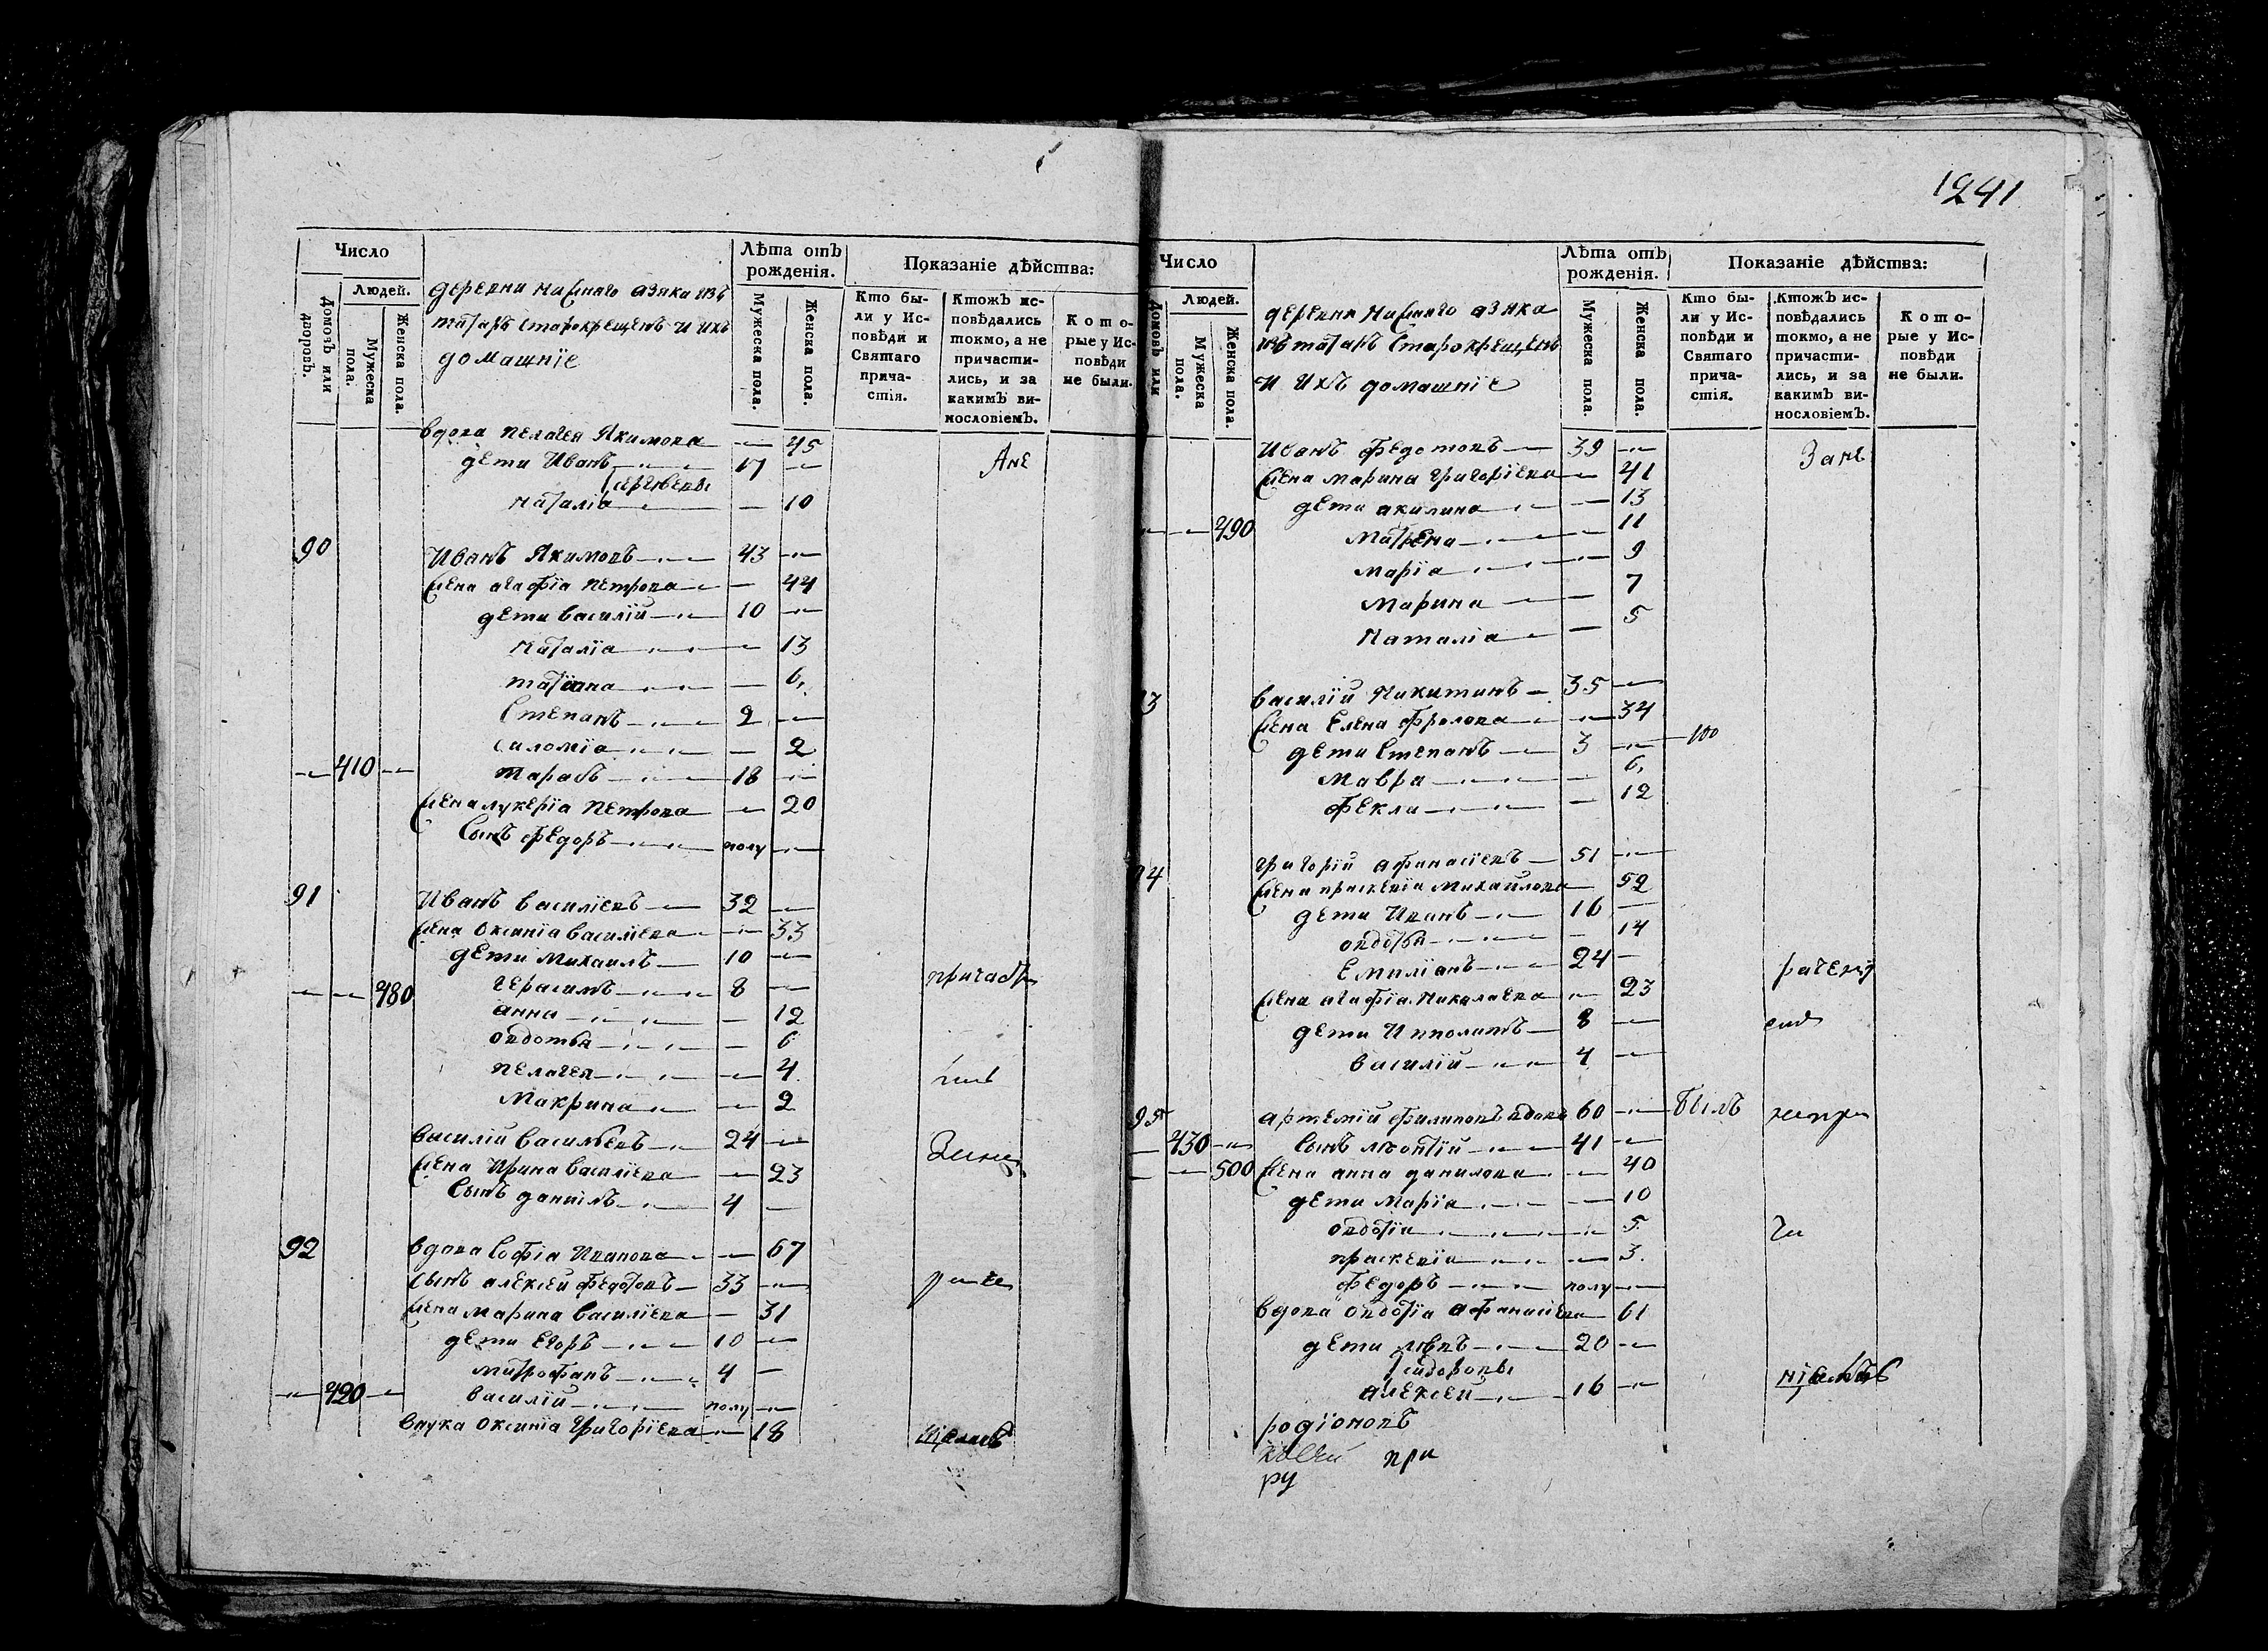 Число
Лѣта отъ рожденія.
Показаніе дѣйства:
Домовъ или дворовъ.
Людей.
Мужеска пола.
Женска пола.
деревни нижняго азяка изъ
татаръ старокрещенъ и ихъ
домашніе
Мужеска пола.
Женска пола.
Кто были у Исповѣди и Святаго причастія.
Ктожъ исповѣдались токмо, а не причастились, и за какимъ винословіемъ.
Которые у Исповѣди не были.
вдова Пелагея Якимова — 45
дети Иванъ 17 — Ане
Сергѣевы
Наталіа — 10
90 Иванъ Якимовъ 43 —
Жена агафіа Петрова — 44
дети василій 10 —
Наталіа — 13
татіана — 6
Степанъ 2 —
Саломіа — 2
— 410 — тарасъ 18 —
Жена лукеріа Петрова — 20
Сынъ Федоръ полу —
91 Иванъ василіевъ 32 —
Жена Оксиніа василіева — 33
дети Михаилъ 10 —
— — 480 Герасимъ 8 —
анна — 12
овдотьа — 6
пелагея — 4
Макрина — 2
василій васильевъ 24 —
Жена Ирина василіева — 23
Сынъ даніилъ 4 —
92 вдова Софіа Иванова — 67
сынъ алексей Федотовъ 33 —
Жена Марина василіева — 31
дети Егоръ 10 —
митрофанъ 4 —
— 420 — василій полу —
внука Оксиніа Григоріева — 18
1241
Число
Лѣта отъ рожденія.
Показаніе дѣйства:
Домовъ или
Людей.
Мужеска пола.
Женска пола.
деревни Нижняго азяка
изъ татаръ Старокрещенъ
и ихъ домашніе
Мужеска пола.
Женска пола.
Кто были у Исповѣди и Святаго причастія.
Ктожъ исповѣдались токмо, а не причастились, и за какимъ винословіемъ.
Которые у Исповѣди не были.
Иванъ Федотовъ 39 — Зане
Жена марина Григоріева — 41
дети акилина — 13
— — 490 Матрена — 11
Маріа — 9
Марина — 7
Наталіа — 5
3 василій Никитинъ 35 —
Жена Елена Фролова — 34
дети Степанъ 3 —
Мавра — 6
Фекла — 12
4 Григорій афанасіевъ 51 —
Жена праскевіа Михайлова 52
дети Иванъ 16 —
овдотьа — 14
Емиліанъ 24 —
Жена агафіа Николаева — 23
дети Ипполитъ 8 —
василій 4 —
95 артемій Филиповъ вдовъ 60 — былъ
— 430 — Сынъ леонтій 41 —
— — 500 Жена анна данилова — 40
дети Маріа — 10
овдотіа — 5
праскевіа — 3
Федоръ полу —
вдова овдотіа афанасіева — 61
дети левъ 20 —
Сидоровы
алексей 16 —
родіоновъ
при
ру